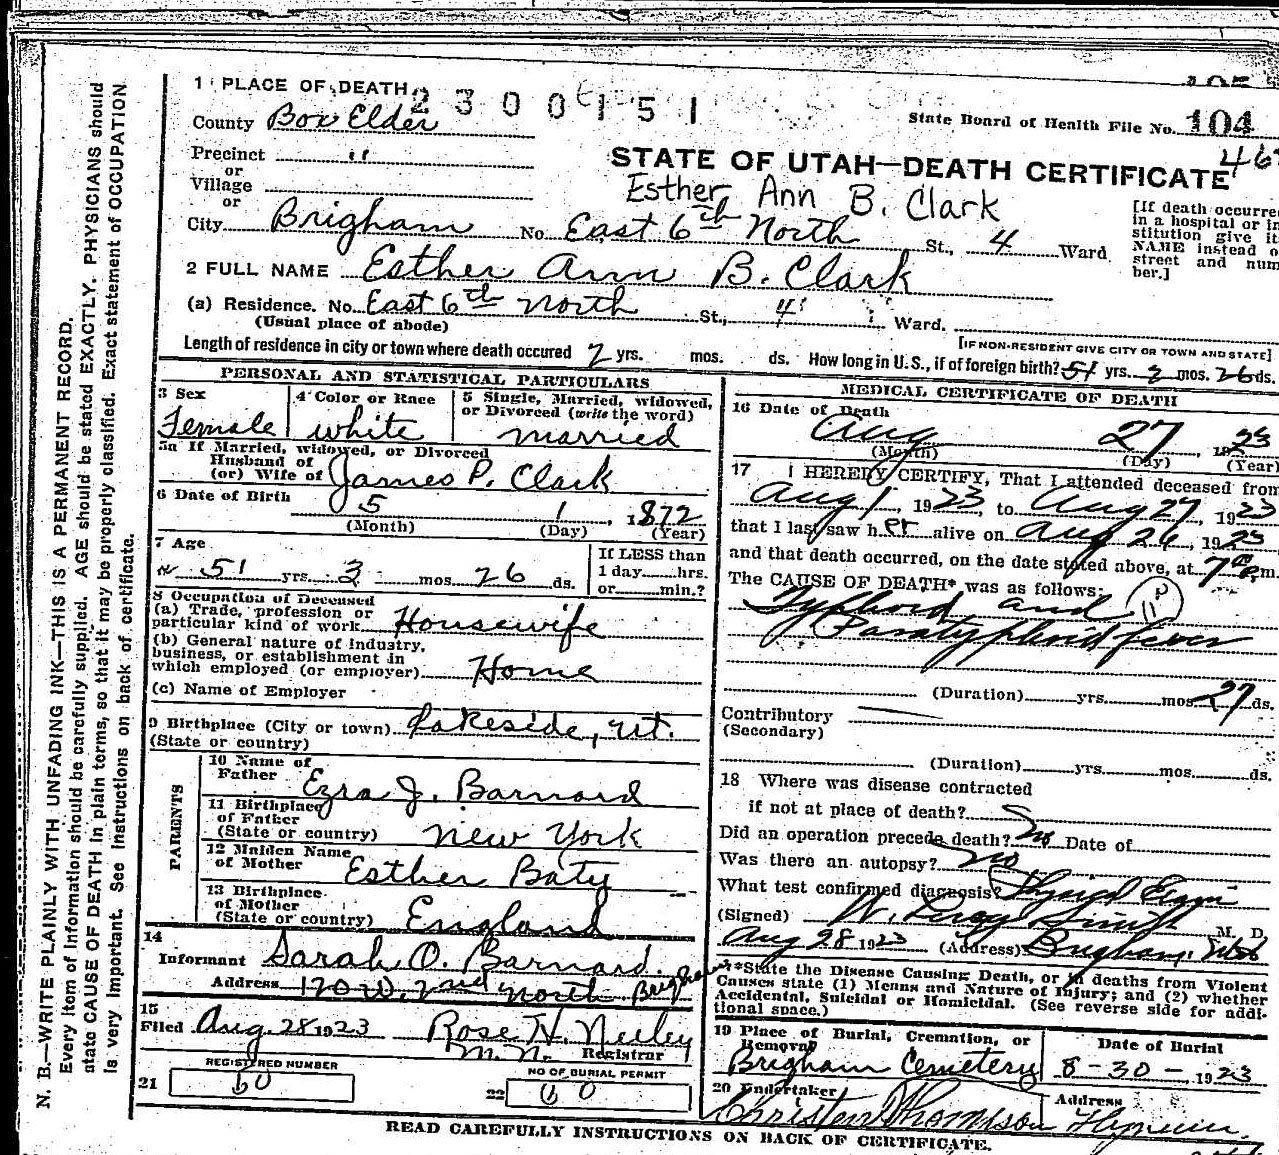 1 PLACE OF DEATH 2300151
County Box Elder
State Board of Health File No. 104
Precinct "
or
Village
or
STATE OF UTAH—DEATH CERTIFICATE
Esther Ann B. Clark
City Brigham No. East 6th North St., 4 Ward
[If death occurre
in a hospital or in
stitution give it
NAME instead o
street and num
ber.]
2 FULL NAME Esther Ann B. Clark
(a) Residence. No. East 6th North St., 4 Ward.
(Usual place of abode)
[IF NON-RESIDENT GIVE CITY OR TOWN AND STATE]
Length of residence in city or town where death occured 7 yrs. mos. ds. How long in U.S., if of foreign birth? 51 yrs. 2 mos. 26 ds.
PERSONAL AND STATISTICAL PARTICULARS
3 Sex
Female
4 Color or Race
white
5 Single, Married, widowed,
or Divorced (write the word)
married
5a If Married, widowed, or Divorced
Husband of
(or) Wife of James P. Clark
6 Date of Birth
5 1, 1872
(Month) (Day) (Year)
7 Age
51 yrs. 3 mos. 26 ds.
If LESS than
1 day hrs.
or min.?
8 Occupation of Deceased
(a) Trade, profession or
particular kind of work Housewife
(b) General nature of industry,
business, or establishment in
which employed (or employer) Home
(c) Name of Employer
9 Birthplace (City or town) Lakeside, Ut.
(State or country)
PARENTS
10 Name of
Father Ezra J. Barnard
11 Birthplace
of Father
(State or country) New York
12 Maiden Name
of Mother Esther Baty
13 Birthplace
of Mother
(State or country) England
14
Informant Sarah O. Barnard.
Address 120 W. 2nd North Brigham
15
Filed Aug. 28 1923 Rose H. Neeley
Registrar
REGISTERED NUMBER
21 60
NO OF BURIAL PERMIT
22 60
MEDICAL CERTIFICATE OF DEATH
16 Date of Death
Aug 27, 1923
(Month) (Day) (Year)
17 I HEREBY CERTIFY, That I attended deceased from
Aug 1, 1923, to Aug 27, 1923
that I last saw her alive on Aug 26, 1923
and that death occurred, on the date stated above, at 7 m.
The CAUSE OF DEATH* was as follows:
Typhoid and
Paratyphoid fever
(Duration) yrs. mos. 27 ds.
Contributory
(Secondary)
(Duration) yrs. mos. ds.
18 Where was disease contracted
if not at place of death?
Did an operation precede death? No Date of
Was there an autopsy? No
What test confirmed diagnosis?
(Signed) W. Smith M. D.
Aug 28 1923 (Address) Brigham, Utah
*State the Disease Causing Death, or in deaths from Violent
Causes state (1) Menns and Nature of Injury; and (2) whether
Accidental, Suicidal or Homicidal. (See reverse side for addi-
tional space.)
19 Place of Burial, Cremation, or
Removal
Brigham Cemetery
Date of Burial
8-30-, 1923
20 Undertaker
Christen Thompson
Address
READ CAREFULLY INSTRUCTIONS ON BACK OF CERTIFICATE.
N. B.—WRITE PLAINLY WITH UNFADING INK—THIS IS A PERMANENT RECORD.
Every item of information should be carefully supplied. AGE should be stated EXACTLY. PHYSICIANS should
state CAUSE OF DEATH in plain terms, so that it may be properly classified. Exact statement of OCCUPATION
is very important. See instructions on back of certificate.